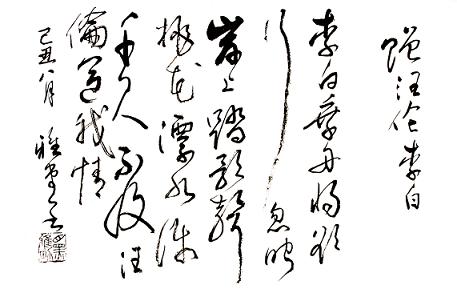 贈汪倫李白
李白乘舟将欲
行忽
岸上踏歌聲
桃花潭水深
千尺不及汪
倫送我情
己丑八月雅